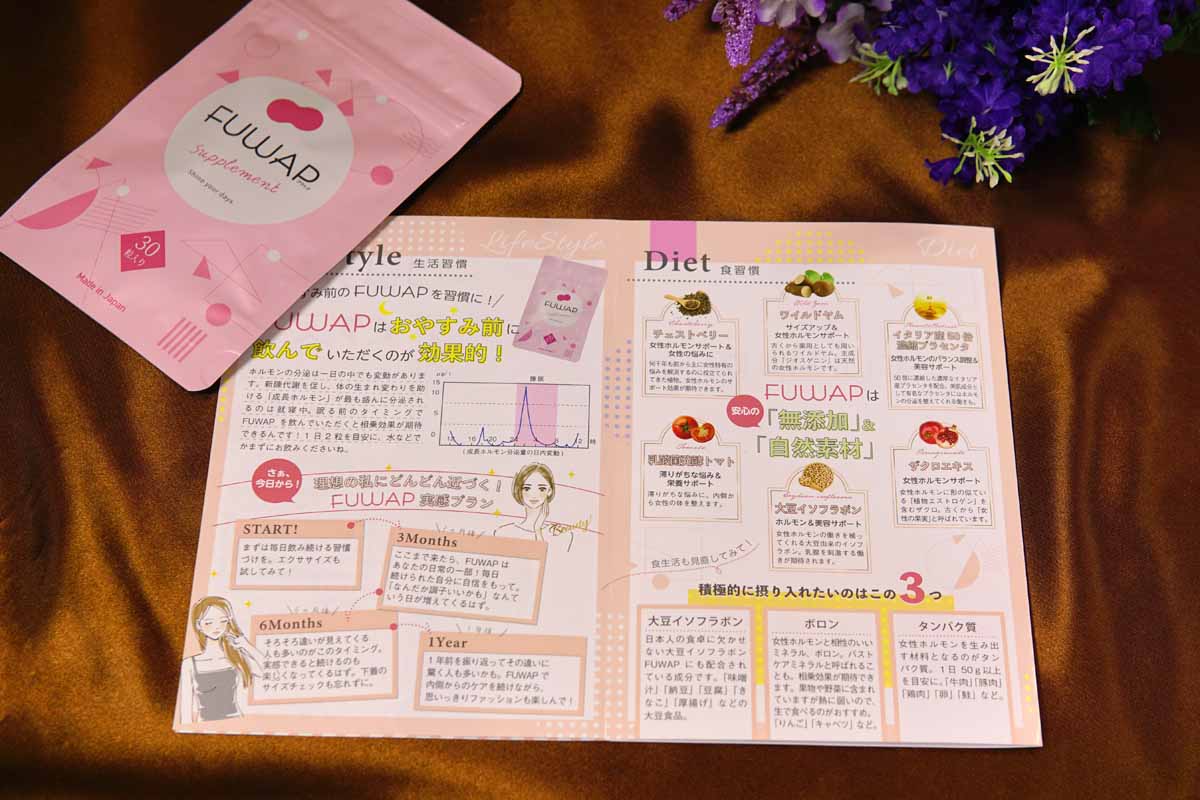 FUWAP
Supplement
Shine your days.
30
粒入り
Made in Japan
LifeStyle
tyle 生活習慣
すみ前のFUWAPを習慣に！
FUWAPはおやすみ前に
飲んでいただくのが効果的！
ホルモンの分泌は一日の中でも変動がありま
す。新陳代謝を促し、体の生まれ変わりを助
ける「成長ホルモン」が最も盛んに分泌され
るのは就寝中。眠る前のタイミングで
FUWAPを飲んでいただくと相乗効果が期待
できるんです！1日2粒を目安に、水などで
かまずにお飲みくださいね。
睡眠
15
10
5
0
時
(成長ホルモン分泌量の日内変動)
さぁ、
今日から！
理想の私にどんどん近づく！
FUWAP 実感プラン
Beauty
START!
まずは毎日飲み続ける習慣
づけを。エクササイズも
試してみて！
3Months
ここまで来たら、FUWAPは
あなたの日常の一部！毎日
続けられた自分に自信をもって。
「なんだか調子いいかも」なんて
いう日が増えてくるはず。
6Months
そろそろ違いが見えてくる
人も多いのがこのタイミング。
実感できると続けるのも
楽しくなってくるはず。下着の
サイズチェックも忘れずに。
1Year
1年前を振り返ってその違いに
驚く人も多いかも。FUWAPで
内側からのケアを続けながら、
思いっきりファッションも楽しんで！
Diet
Diet 食習慣
チェストベリー
女性ホルモンサポート＆
女性の悩みに
何千年も前から主に女性特有の
悩みを解消するのに役立てられ
てきた植物。女性ホルモンのサ
ポート効果が期待できます。
Wild Yam
ワイルドヤム
サイズアップ＆
女性ホルモンサポート
古くから薬用としても用い
られるワイルドヤム。主成
分「ジオスゲニン」は天然
の女性ホルモンです。
イタリア産50倍
濃縮プラセンタ
女性ホルモンのバランス調整＆
美容サポート
50倍に濃縮した濃厚なイタリア
産プラセンタを配合。美肌成分とし
て有名なプラセンタにはホルモ
ンの分泌を整えてくれる働きも。
FUWAPは
安心の
「無添加」＆
「自然素材」
Tomato
乳酸菌発酵トマト
滞りがちな悩み＆
栄養サポート
滞りがちな悩みに。内側か
ら女性の体を整えます。
大豆イソフラボン
ホルモン＆美容サポート
女性ホルモンの働きを補っ
てくれる大豆由来のイソフ
ラボン。乳腺を刺激する働
きが期待されます。
Pomegranate
ザクロエキス
女性ホルモンサポート
女性ホルモンに形の似ている
「植物エストロゲン」を
含むザクロ。古くから「女
性の果実」と呼ばれています。
食生活も見直してみて！
積極的に摂り入れたいのはこの3つ
大豆イソフラボン
日本人の食卓に欠かせ
ない大豆イソフラボン
FUWAPにも配合され
ている成分です。「味噌
汁」「納豆」「豆腐」「き
なこ」「厚揚げ」などの
大豆食品。
ボロン
女性ホルモンと相性のいい
ミネラル、ボロン。バスト
ケアミネラルと呼ばれるこ
とも。相乗効果が期待でき
ます。果物や野菜に含まれ
ていますが熱に弱いので、
生で食べるのがおすすめ。
「りんご」「キャベツ」など。
タンパク質
女性ホルモンを生み出
す材料となるのがタン
パク質。1日50g以上
を目安に。「牛肉」「豚肉」
「鶏肉」「卵」「鮭」など。